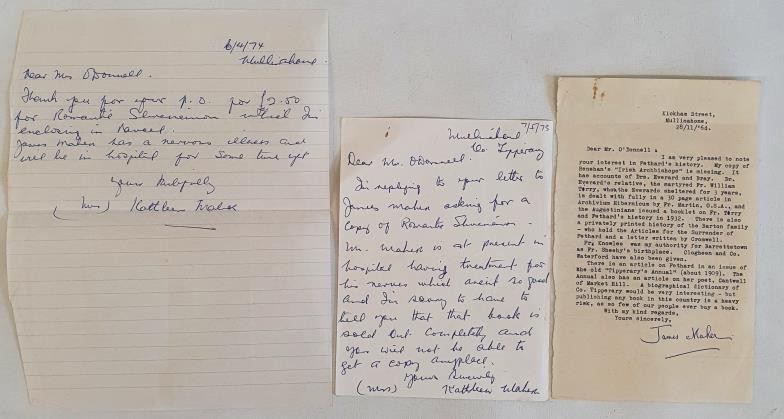 6/4/74
Mullinahone
Dear Mr O'Donnell.
Thank you for your p.o. for £2.50
for Romantic Slievenamon which I'm
enclosing in Parcel.
James Maher has a nervous illness and
will be in hospital for some time yet
Yours
(Mrs) Kathleen Maher
7/5/73
Mullinahone
Co. Tipperary
Dear Mr. O'Donnell.
In replying to your letter to
James Maher asking for a
copy of Romantic Slievenamon.
Mr. Maher is at present in
hospital having treatment for
his nerves which arent so good
and I'm sorry to have to
tell you that that book is
sold out completely and
you will not be able to
get a copy anyplace.
Yours Sincerely
(Mrs) Kathleen Maher
Kickham Street,
Mullinahone.
28/11/'64.
Dear Mr. O'Donnell :
I am very pleased to note
your interest in Fethard's history. My copy of
Renehan's "Irish Archbishops" is missing. It
has accounts of Drs. Everard and Bray. Dr.
Everard's relative, the martyred Fr. William
Tirry, whom the Everards sheltered for 3 years,
is dealt with fully in a 30 page article in
Archivium Hibernicum by Fr. Martin, O.S.A., and
the Augustinians issued a booklet on Fr. Tirry
and Fethard's history in 1932. There is also
a privately printed history of the Barton family
- who hold the Articles for the Surrender of
Fethard and a letter written by Cromwell.
Fr. Knowles was my authority for Barrettstown
as Fr. Sheehy's birthplace. Clogheen and Co.
Waterford have also been given.
There is an article on Fethard in an issue of
the old "Tipperary's Annual" (about 1909). The
Annual also has an article on her poet, Cantwell
of Market Hill. A biographical dictionary of
Co. Tipperary would be very interesting - but
publishing any book in this country is a heavy
risk, as so few of our people ever buy a book.
With my kind regards,
Yours sincerely,
James Maher